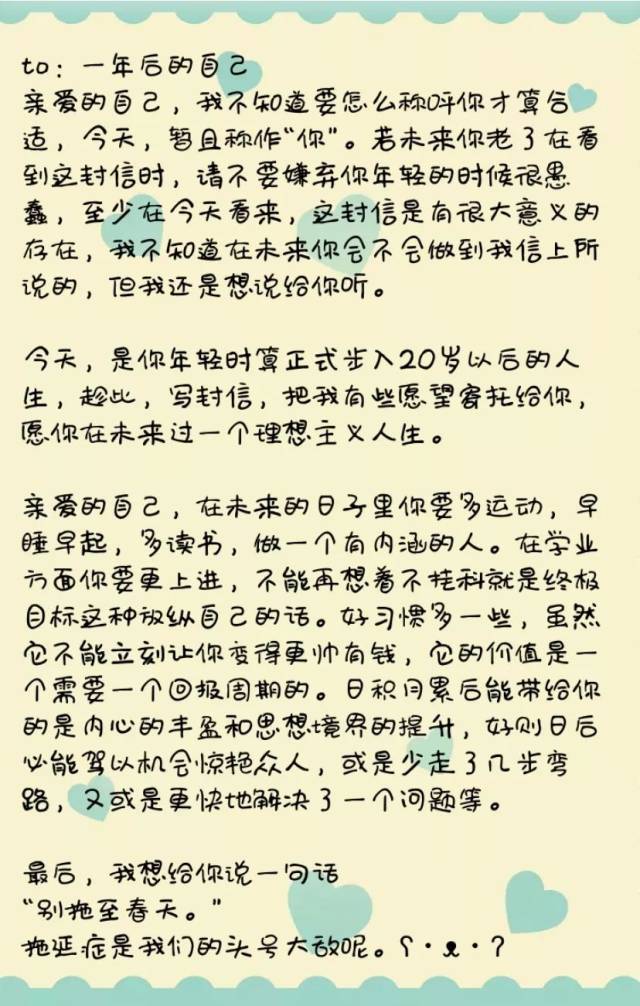 to：一年后的自己
亲爱的自己，我不知道要怎么称呼你才算合
适，今天，暂且称作“你”。若未来你老了在看
到这封信时，请不要嫌弃你年轻的时候很愚
蠢，至少在今天看来，这封信是有很大意义的
存在，我不知道在未来你会不会做到我信上所
说的，但我还是想说给你听。
今天，是你年轻时算正式步入20岁以后的人
生，趁此，写封信，把我有些愿望寄托给你，
愿你在未来过一个理想主义人生。
亲爱的自己，在未来的日子里你要多运动，早
睡早起，多读书，做一个有内涵的人。在学业
方面你要更上进，不能再想着不挂科就是终极
目标这种放纵自己的话。好习惯多一些，虽然
它不能立刻让你变得更帅有钱，它的价值是一
个需要一个回报周期的。日积月累后能带给你
的是内心的丰盈和思想境界的提升，好则日后
必能驾以机会惊艳众人，或是少走了几步弯
路，又或是更快地解决了一个问题等。
最后，我想给你说一句话
“别拖至春天。”
拖延症是我们的头号大敌呢。ʕ·ᴥ·?